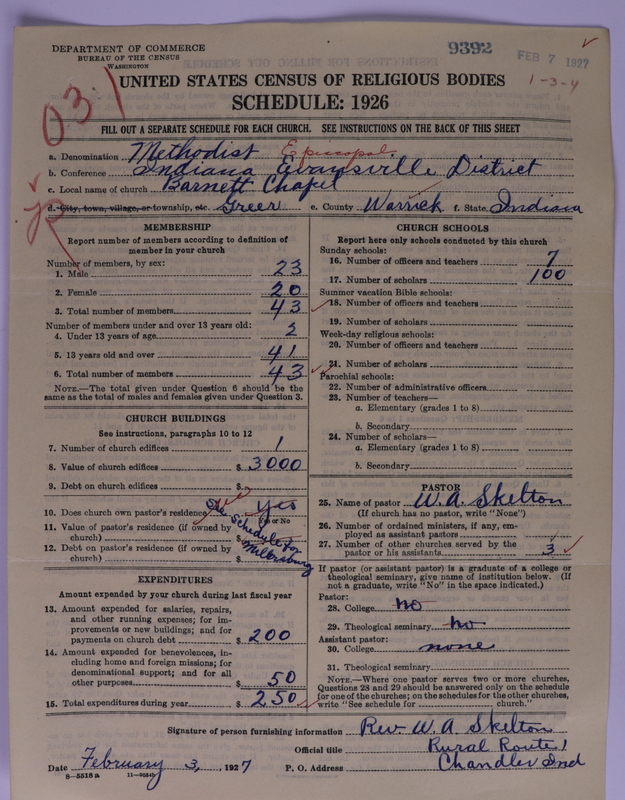 DEPARTMENT OF COMMERCE
BUREAU OF THE CENSUS
WASHINGTON
9392
FEB 7 1927
1-3-4
031
UNITED STATES CENSUS OF RELIGIOUS BODIES
SCHEDULE: 1926
FILL OUT A SEPARATE SCHEDULE FOR EACH CHURCH. SEE INSTRUCTIONS ON THE BACK OF THIS SHEET
a. Denomination Methodist Episcopal
b. Conference Indiana Evansville District
c. Local name of church Barnett Chapel
d. City, town, village, or township, etc. Greer e. County Warrick f. State Indiana
MEMBERSHIP
Report number of members according to definition of
member in your church
Number of members, by sex:
1. Male 23
2. Female 20
3. Total number of members 43
Number of members under and over 13 years old:
4. Under 13 years of age 2
5. 13 years old and over 41
6. Total number of members 43
NOTE.—The total given under Question 6 should be the
same as the total of males and females given under Question 3.
CHURCH BUILDINGS
See instructions, paragraphs 10 to 12
7. Number of church edifices 1
8. Value of church edifices $ 3000
9. Debt on church edifices $
10. Does church own pastor's residence yes
Yes or No
11. Value of pastor's residence (if owned by
church) $
12. Debt on pastor's residence (if owned by
church) $
See Schedule for
Millersburg
EXPENDITURES
Amount expended by your church during last fiscal year
13. Amount expended for salaries, repairs,
and other running expenses; for im-
provements or new buildings; and for
payments on church debt $ 200
14. Amount expended for benevolences, in-
cluding home and foreign missions; for
denominational support; and for all
other purposes $ 50
15. Total expenditures during year $ 250
CHURCH SCHOOLS
Report here only schools conducted by this church
Sunday schools:
16. Number of officers and teachers 7
17. Number of scholars 100
Summer vacation Bible schools:
18. Number of officers and teachers
19. Number of scholars
Week-day religious schools:
20. Number of officers and teachers
21. Number of scholars
Parochial schools:
22. Number of administrative officers
23. Number of teachers—
a. Elementary (grades 1 to 8)
b. Secondary
24. Number of scholars—
a. Elementary (grades 1 to 8)
b. Secondary
PASTOR
25. Name of pastor W. A. Skelton
(If church has no pastor, write "None")
26. Number of ordained ministers, if any, em-
ployed as assistant pastors
27. Number of other churches served by the
pastor or his assistants 3
If pastor (or assistant pastor) is a graduate of a college or
theological seminary, give name of institution below. (If
not a graduate, write "No" in the space indicated.)
Pastor:
28. College no
29. Theological seminary no
Assistant pastor:
30. College none
31. Theological seminary
NOTE.—Where one pastor serves two or more churches,
Questions 28 and 29 should be answered only on the schedule
for one of the churches; on the schedules for the other churches,
write "See schedule for church."
Signature of person furnishing information Rev. W. A. Skelton
Official title Rural Route 1
Date February 3, 1927 P. O. Address Chandler Ind
8—5518a 11—9554